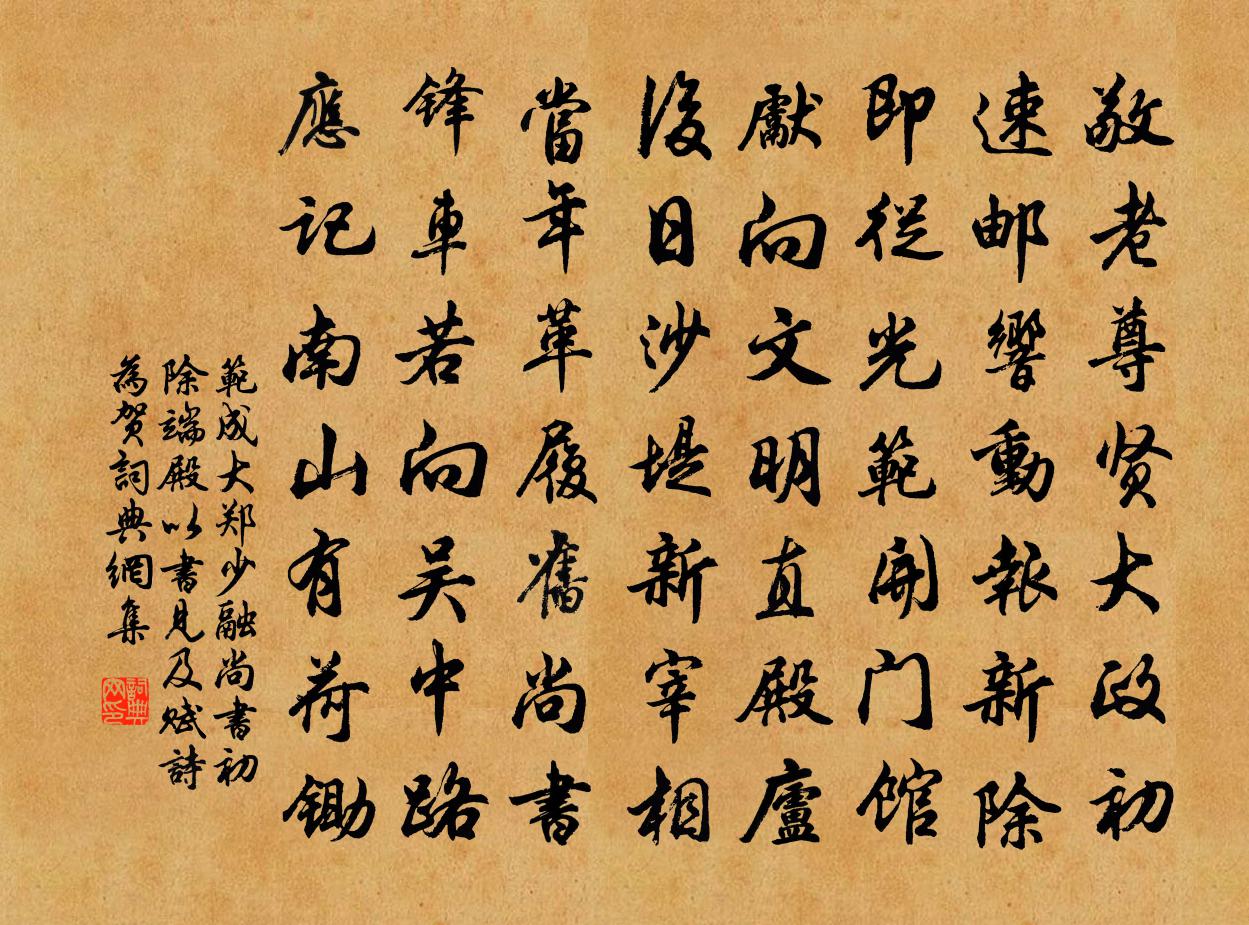 敬老尊贤大政初
速邮響動報新除
即從光範開门馆
獻向文明直殿廬
後日沙堤新宰相
當年革履舊尚書
鋒車若向吴中路
應记南山有荷锄
範成大郑少融尚書初
除端殿以書見及赋詩
為贺詞典網集
詞典
网印